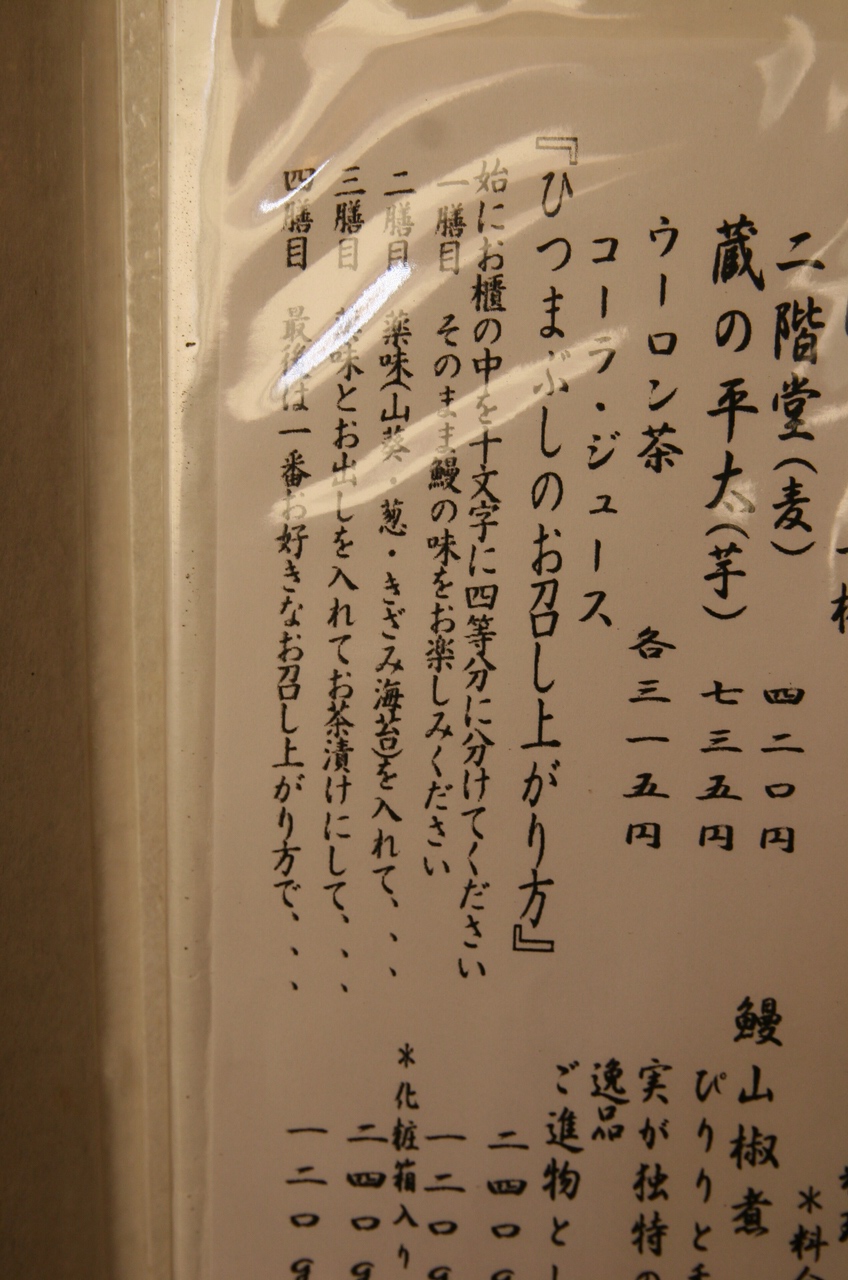 二階堂(麦) 四二〇円
蔵の平太(芋) 七三五円
ウーロン茶
コーラ・ジュース 各三一五円
『ひつまぶしのお召し上がり方』
始にお櫃の中を十文字に四等分に分けてください
一膳目 そのまま鰻の味をお楽しみください
二膳目 薬味(山葵・葱・きざみ海苔)を入れて、、、
三膳目 薬味とお出しを入れてお茶漬けにして、、、
四膳目 最後は一番お好きなお召し上がり方で、、、
*料
鰻山椒煮
ぴりりと
実が独特の
逸品
ご進物とし
二四〇g
一二〇g
*化粧箱入り
二四〇g
一二〇g